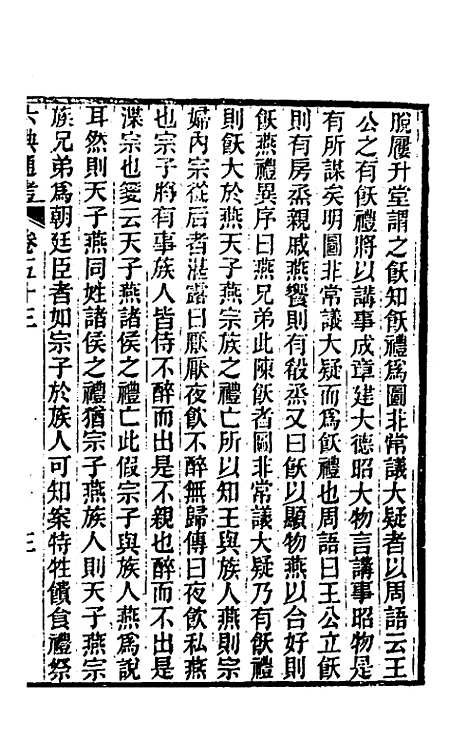 脫屨升堂謂之飫知飫禮爲圖非常議大疑者以周語云王
公之有飫禮將以講事成章建大德昭大物言講事昭物是
有所謀矣明圖非常議大疑而爲飫禮也周語曰王公立飫
則有房烝親戚燕饗則有殽烝又曰飫以顯物燕以台好則
飫燕禮異序曰燕兄弟此陳飫者圖非常議大疑乃有飫禮
則飫大於燕天子燕宗族之禮亡所以知王與族人燕則宗
婦內宗從后者湛露曰厭厭夜飮不醉無歸傳曰夜飮私燕
也宗子將有事族人皆侍不醉而出是不親也醉而不出是
渫宗也箋云天子燕諸侯之禮亡此假宗子與族人燕爲說
耳然則天子燕同姓諸侯之禮猶宗子燕族人則天子燕宗
族兄弟爲朝廷臣者如宗子於族人可知案特牲饋食禮祭
六典通考
卷五十三
三